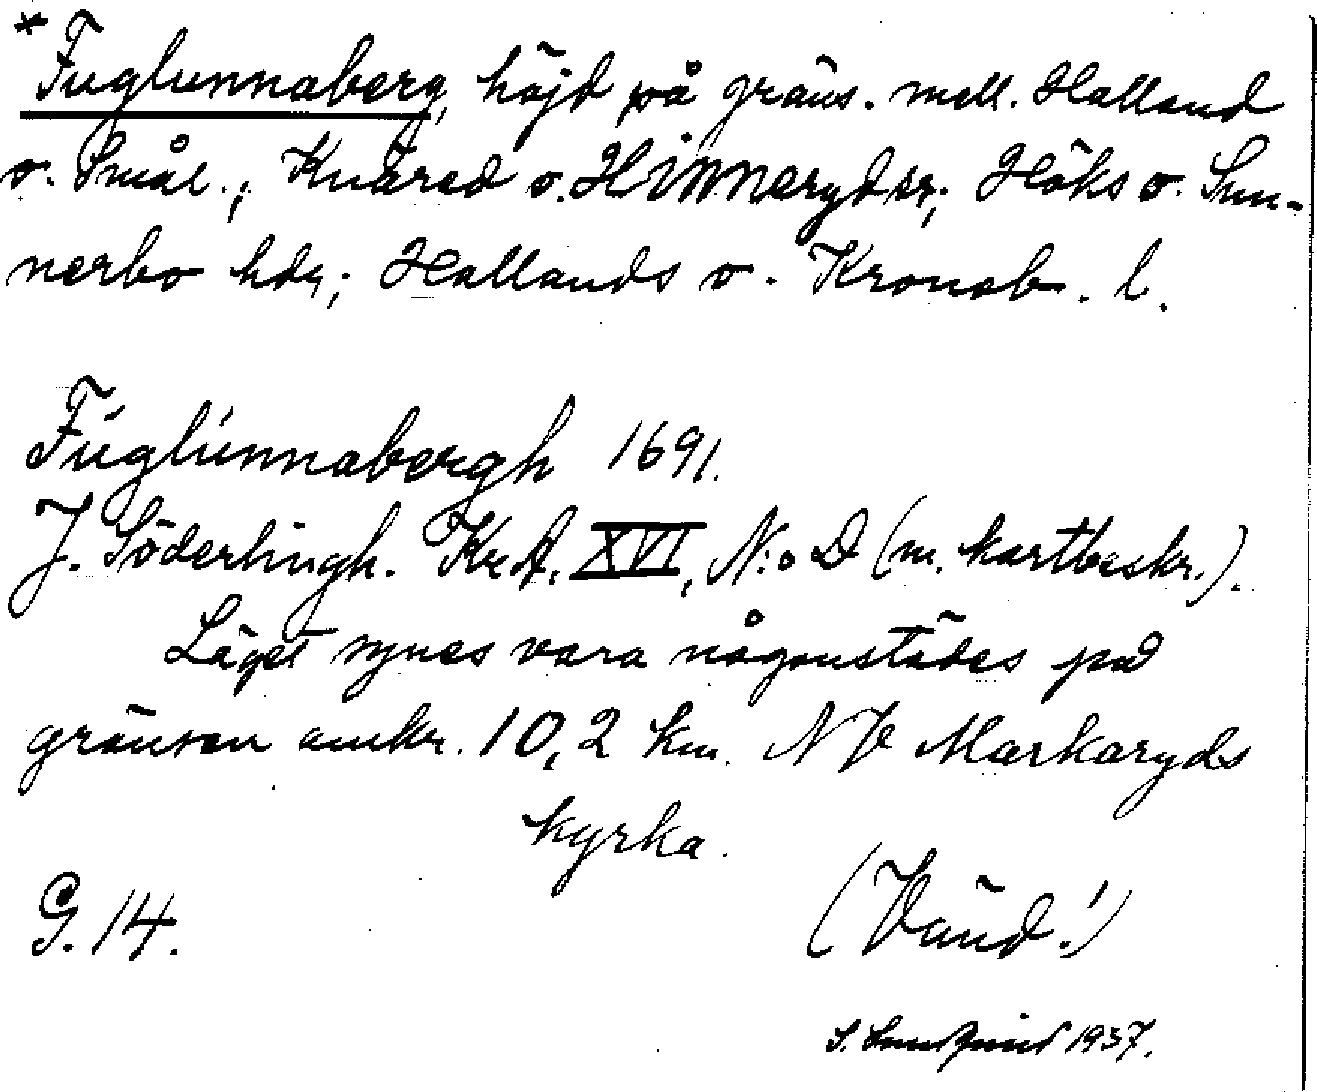 *Fuglunnaberg, höjd på gräns. mell. Halland
o. Smål.; Knäred o. Hinneryds sr; Höks o. Sun-
nerbo hdr; Hallands o. Kronob. l.
Fúglúnnabergh 1691.
J. Söderlingh. Kr.A. XVI, N:o D (m. kartbeskr.).
Läget synes vara någonstädes på
gränsen omkr. 10,2 km. NV Markaryds
kyrka.
G. 14.
(Vänd!)
S. 1937.